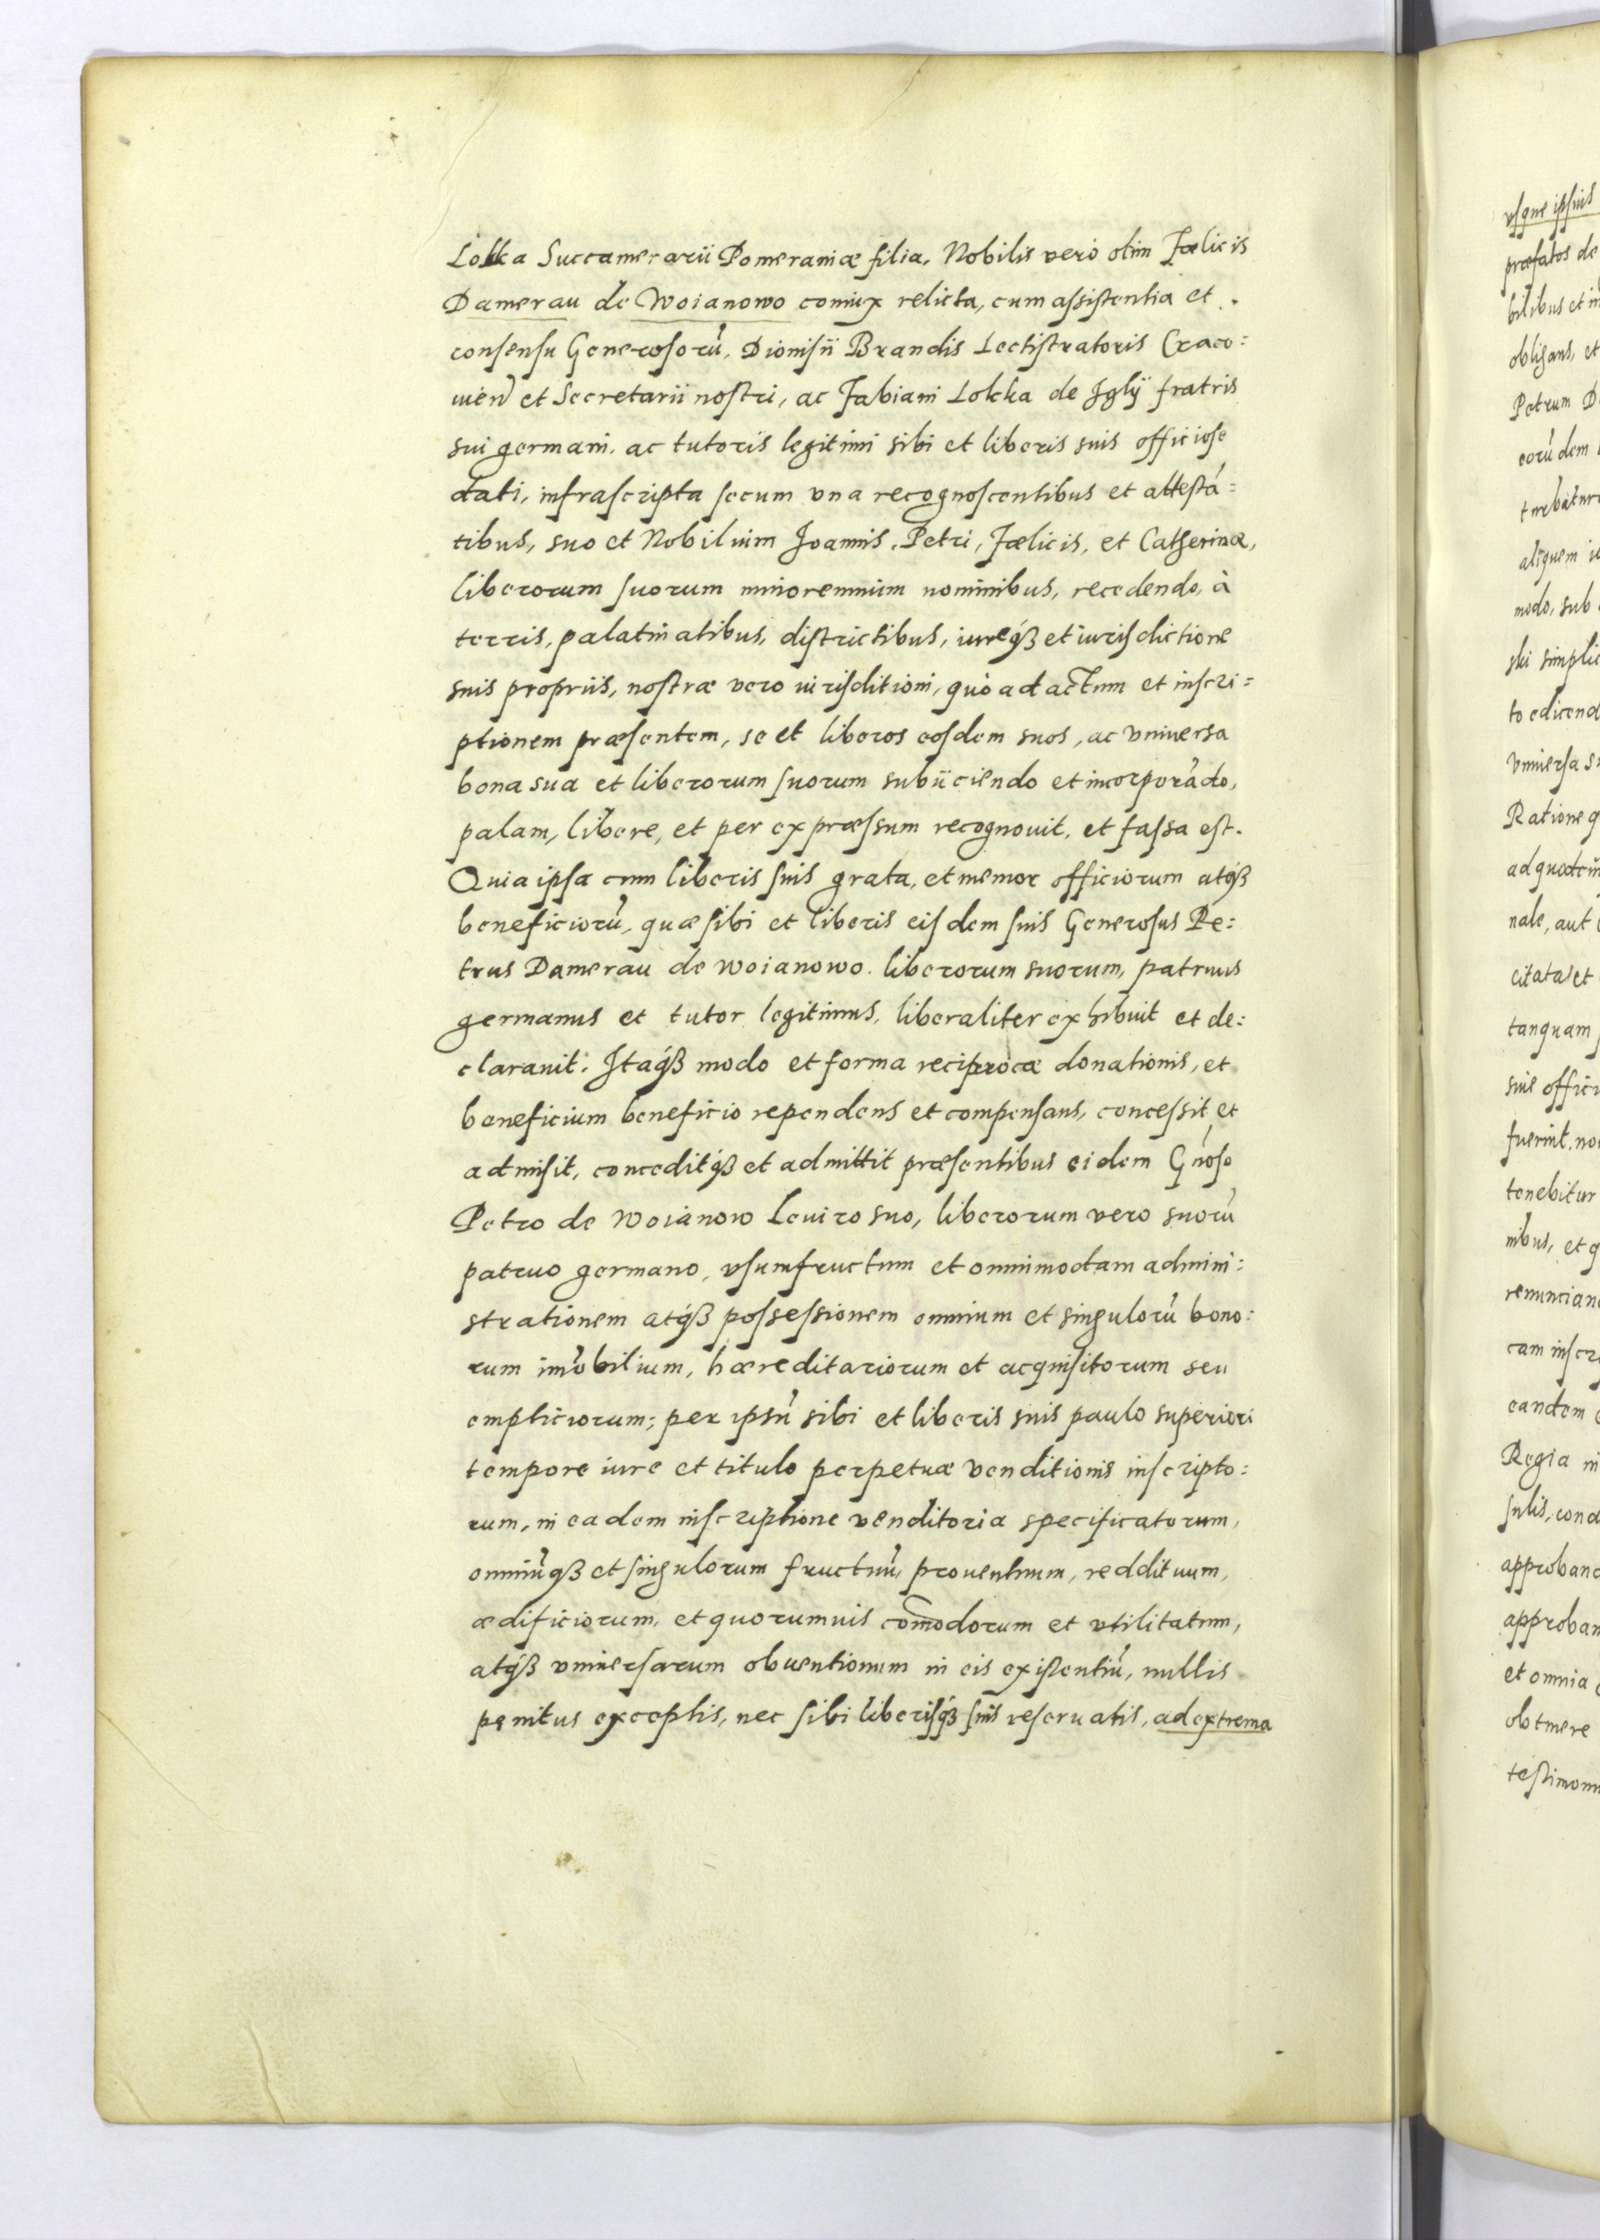 Lokka Succamerarii Pomeraniæ filia, Nobilis verò olim Fœlicis
Damerau de Woianowo coniux relicta, cum assistentia et
consensu Generosorũ, Dionisii Brandis Lectistratoris Craco:
vien̄ et Secretarii nostri, ac Fabiani Lokka de Jgły fratris
sui germani, ac tutoris legitimi sibi et liberis suis officiose
dati, infrascripta secum vna recognoscentibus et attestá:
tibus, suo et Nobilium Joannis, Petri, Fœlicis, et Catherinæ,
liberorum suorum minorennium nominibus, recedendo, à
terris, palatinatibus, districtibus, iureq́ꝫ et iurisdictione
suis propriis, nostræ vero iurisditioni, quò ad actum et inscri:
ptionem præsentem, se et liberos eosdem suos, ac vniuersa
bona sua et liberorum suorum subiiciendo et incorporãdo,
palam, libere, et per expræssum recognouit, et fassa est.
Quia ipsa cum liberis suis grata, et memor officiorum atq́ꝫ
beneficiorũ, quæ sibi et liberis eisdem suis Generosus Pe:
trus Damerau de woianowo. liberorum suorum, patruus
germanus et tutor legitimus, liberaliter exhibuit et de:
clarauit: Jtaq́ꝫ modo et forma reciprocæ donationis, et
beneficium beneficio rependens et compensans, concessit et
admisit, conceditq́ꝫ et admittit præsentibus eidem Gńoso
Petro de woianow Leuiro suo, liberorum vero suorũ
patruo germano, vsumfructum et omnimodam admini:
strationem atq́ꝫ possessionem omnium et singulorũ bono:
rum im̃obilium, hæreditariorum et acquisitorum seu
empticiorum; per ipsũ sibi et liberis suis paulo superiori
tempore iure et titulo perpetuæ venditionis inscripto:
rum, in eadem inscriptione venditoria specificatorum,
omniũq́ꝫ et singulorum fructuũ, prouentuum, reddituum,
ædificiorum, et quorumuis com̃odorum et vtilitatum,
atq́ꝫ vniuersarum obuentionum in eis existentiũ, nullis
penitus exceptis, nec sibi liberisq́ꝫ suis reseruatis, ad extrema
vsque ipsius
præfatos de
bilibus et
obligans, et
Petrum
eorũdem
aliquem
modo, sub
ski
to
vniuersa
Ratione
nale, aut
citata et
tanquam
siue
fuerint,
tenebitur
nibus, et
eandem
Regia
et omnia
obtinere